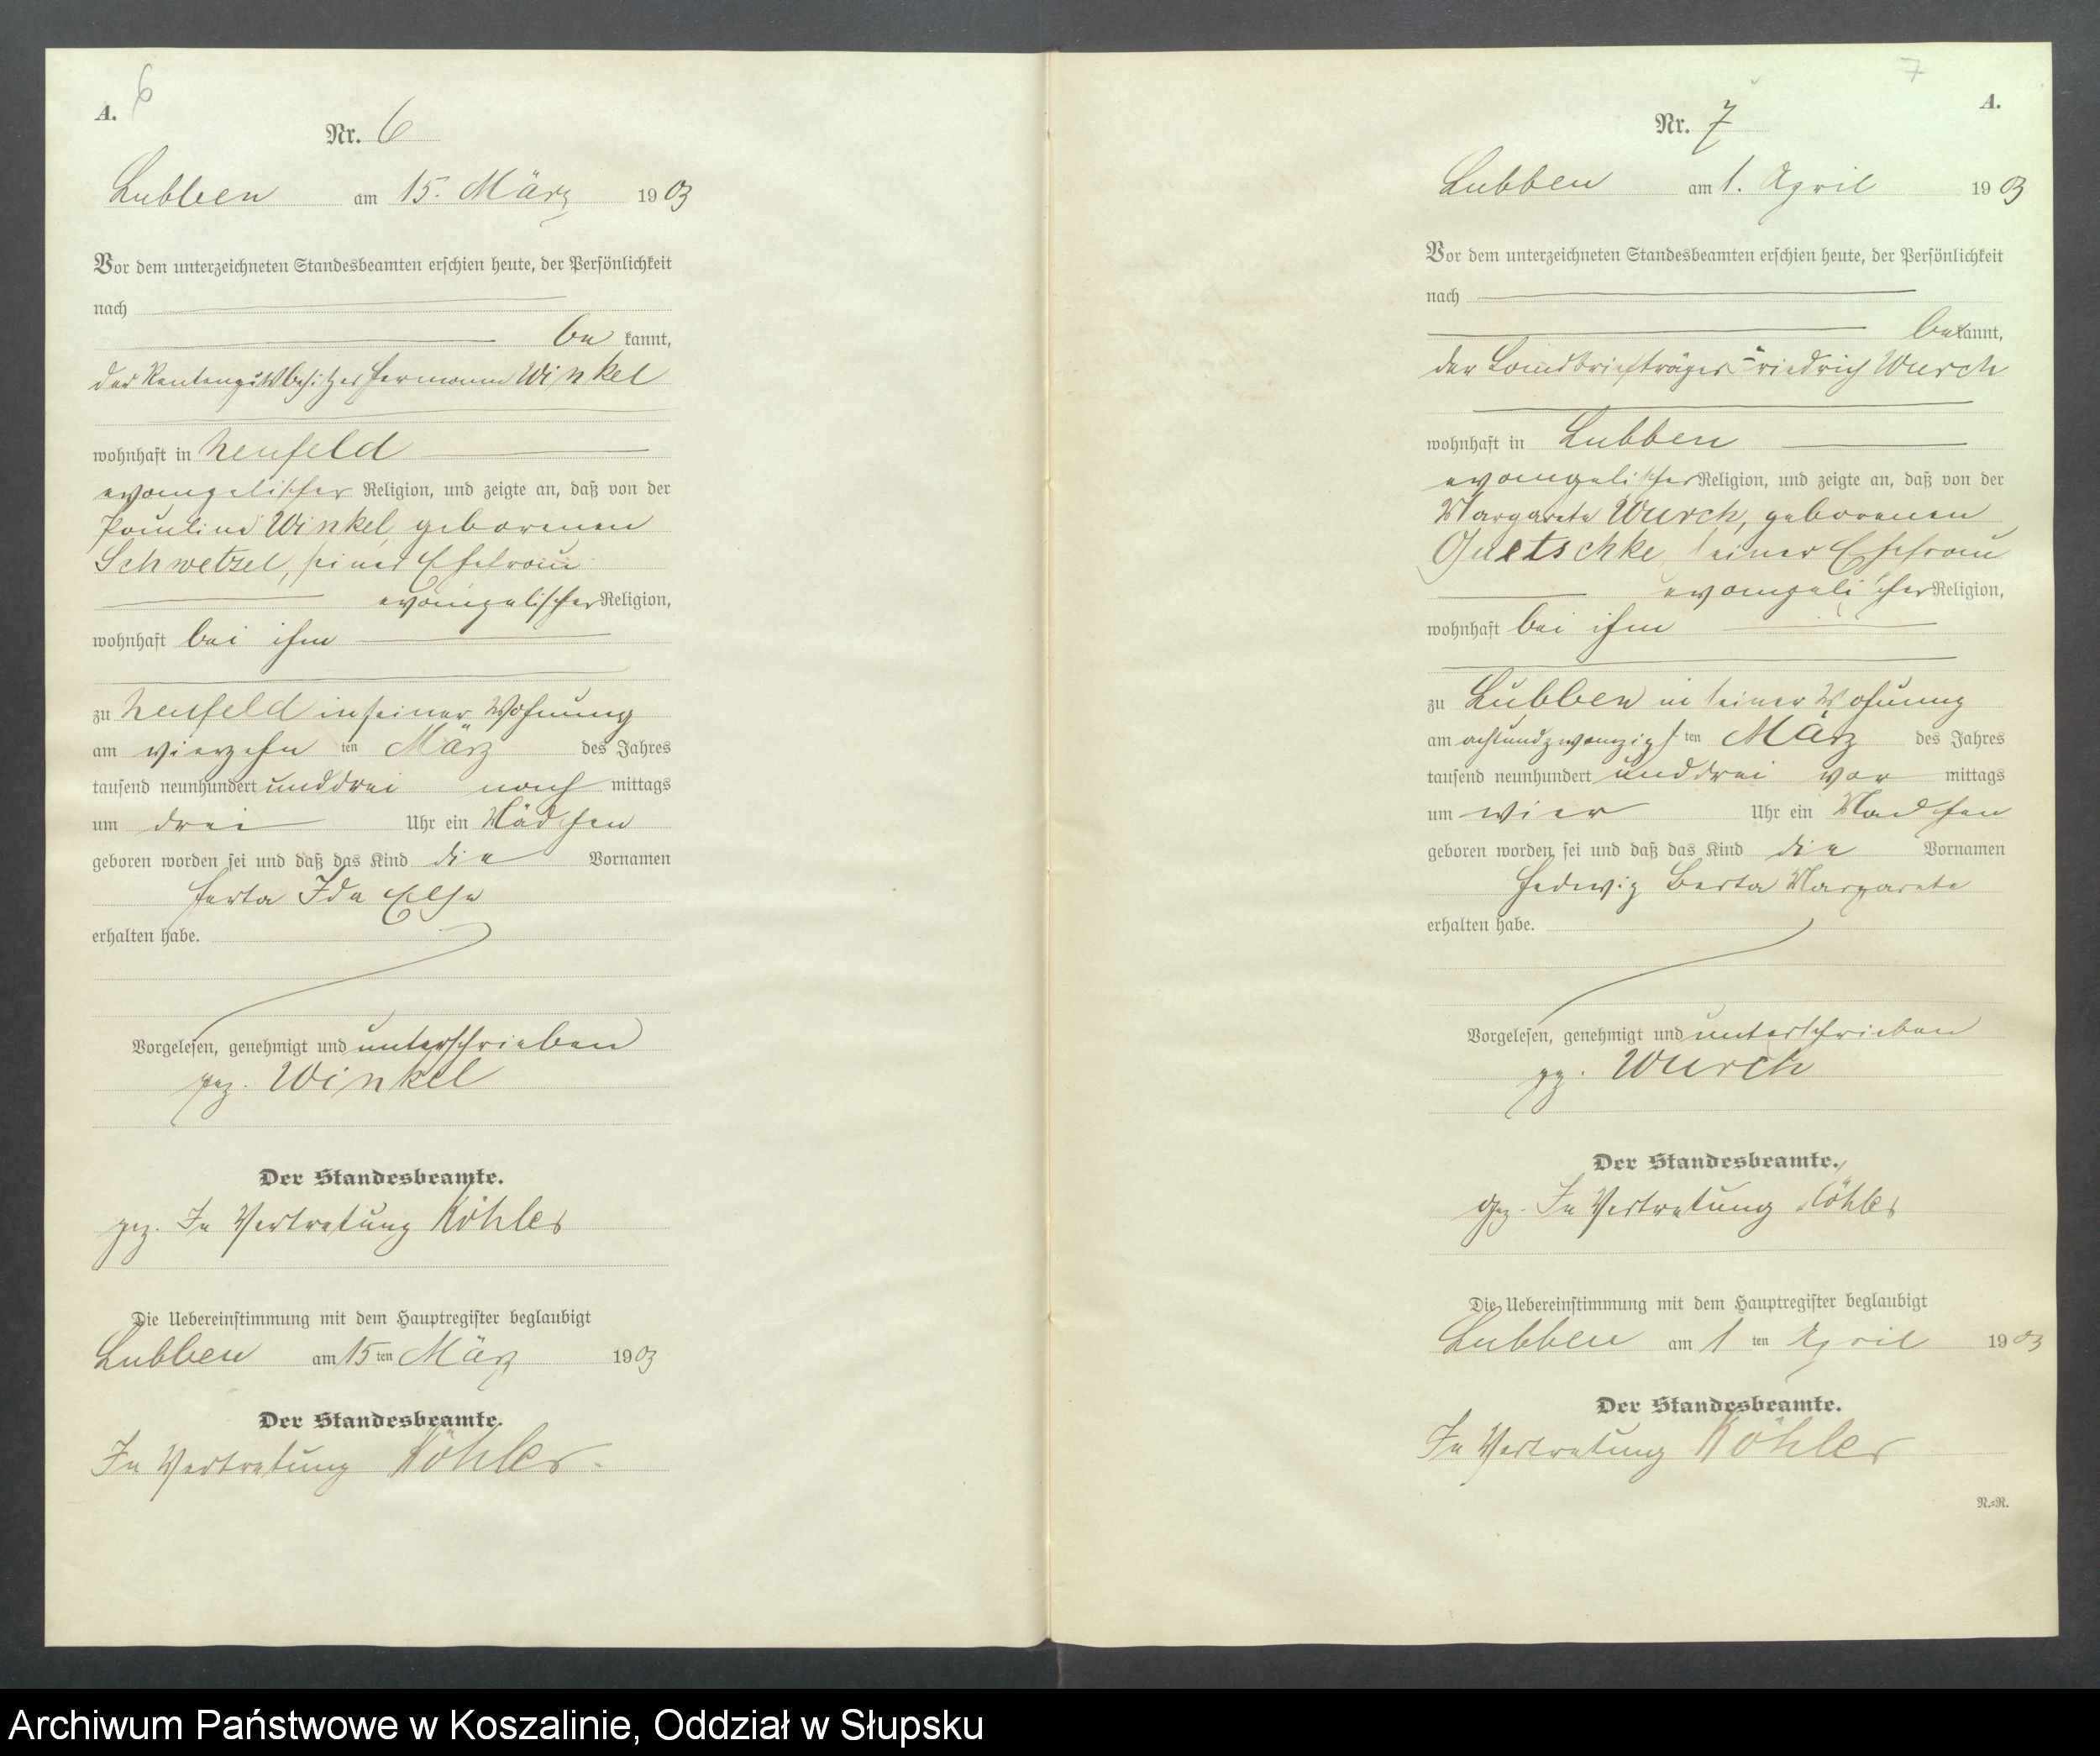 6
A.
Nr. 6
Lubben am 15. März 1903
Vor dem unterzeichneten Standesbeamten erschien heute, der Persönlichkeit
nach
be kannt,
der Rentengutsbesitzer Hermann Winkel
wohnhaft in Neufeld
evangelischer Religion, und zeigte an, daß von der
Pauline Winkel geborenen
Schwetzel, seiner Ehefrau
evangelischer Religion,
wohnhaft bei ihm
zu Neufeld in seiner Wohnung
am vierzehn ten März des Jahres
tausend neunhundert und drei nach mittags
um drei Uhr ein Mädchen
geboren worden sei und daß das Kind die Vornamen
Herta Ida Else
erhalten habe.
Vorgelesen, genehmigt und unterschrieben
gez. Winkel
Der Standesbeamte.
gez. In Vertretung Köhler
Die Uebereinstimmung mit dem Hauptregister beglaubigt
Lubben am 15 ten März 1903
Der Standesbeamte.
In Vertretung Köhler.
7
A.
Nr. 7
Lubben am 1. April 1903
Vor dem unterzeichneten Standesbeamten erschien heute, der Persönlichkeit
nach
bekannt,
der Landbriefträger Friedrich Wurch
wohnhaft in Lubben
evangelischer Religion, und zeigte an, daß von der
Margarete Wurch, geborenen
seiner Ehefrau
evangelischer Religion,
wohnhaft bei ihm
zu Lubben in seiner Wohnung
am achtundzwanzigs ten März des Jahres
tausend neunhundert und drei vor mittags
um vier Uhr ein Madchen
geboren worden sei und daß das Kind die Vornamen
Hedwig Berta Margarete
erhalten habe.
Vorgelesen, genehmigt und unterschrieben
gz. Wurch
Der Standesbeamte.
gez. In Vertretung Köhler
Die Uebereinstimmung mit dem Hauptregister beglaubigt
Lubben am 1 ten April 1903
Der Standesbeamte.
In Vertretung Köhler
N.-R.
Archiwum Państwowe w Koszalinie, Oddział w Słupsku